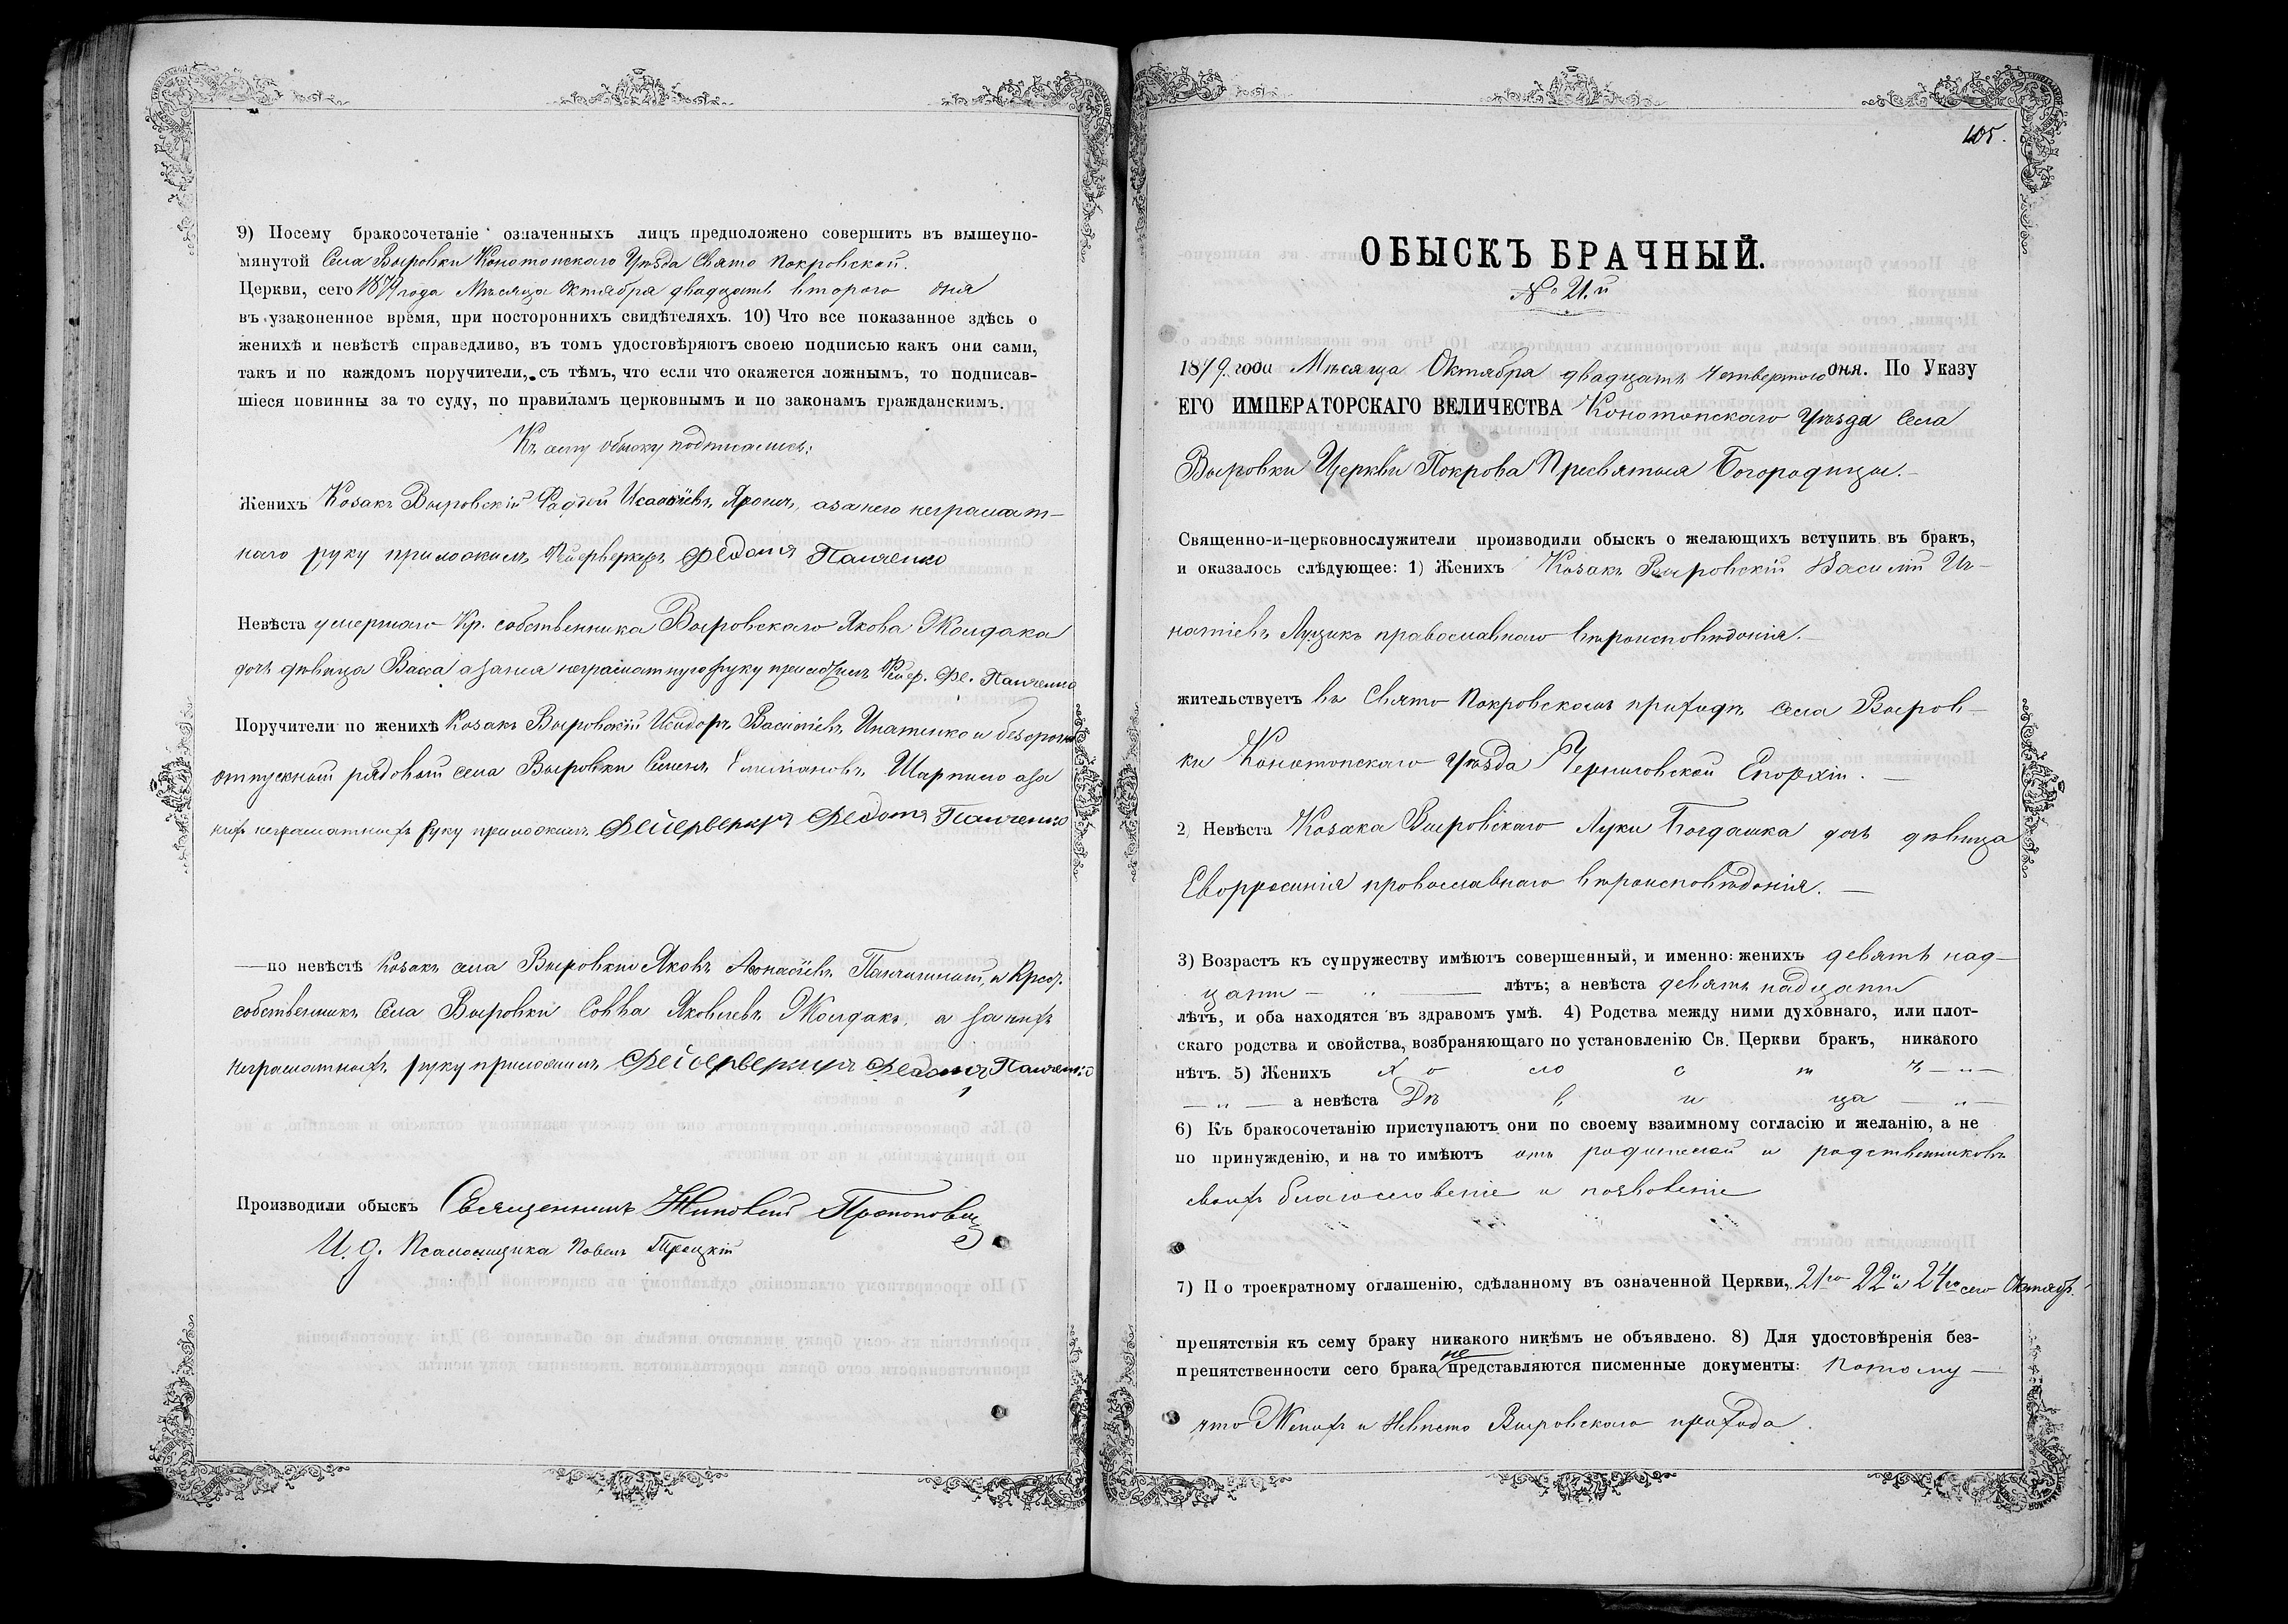 9) Посему бракосочетаніе означенныхъ лицъ предположено совершить въ вышеупо-
мянутой Села Выровки Конотопскаго Уѣзда Свято Покровской.
Церкви, сего 1879 года Мѣсяца Октября двадцать втораго дня
въ узаконенное время, при постороннихъ свидѣтеляхъ. 10) Что все показанное здѣсь о
женихѣ и невѣстѣ справедливо, въ томъ удостовѣряютъ своею подписью какъ они сами,
такъ и по каждомъ поручители, съ тѣмъ, что если что окажется ложнымъ, то подписав-
шіеся повинны за то суду, по правиламъ церковнымъ и по законамъ гражданскимъ.
Къ сему обыску подписались:
Женихъ Козакъ Выровскій Фаддей Исаакіевъ а за него неграмат-
наго руку приложилъ Фейерверкеръ Федотъ Панченко
Невѣста умершаго Кр. собственника Выровскаго Якова Жолдака
дочь дѣвица Васса а за нея неграматную руку приложилъ Фейер. Фе. Панченко
Поручители по женихѣ Козакъ Выровскій Исидоръ Игнатенко и безсрочно
отпускный рядовый села Выровки Семенъ а за
нихъ неграматныхъ руку приложилъ Фейерверкеръ Федотъ Панченко
—по невѣстѣ Козакъ села Выровки Яковъ Афонасіевъ и Крест.
собственникъ Села Выровки Савва Яковлевъ Жолдакъ, а за нихъ
неграматныхъ руку приложилъ Фейерверкеръ Федотъ Панченко
Производили обыскъ Священникъ Зиновій Протопоповъ
И. д. Псаломщика Павелъ Троцкій
105.
ОБЫСКЪ БРАЧНЫЙ.
№ 21.й
1879 года Мѣсяца Октября двадцать четвертого дня. По Указу
ЕГО ИМПЕРАТОРСКАГО ВЕЛИЧЕСТВА Конотопскаго Уѣзда Села
Выровки Церкви Покрова Пресвятыя Богородицы.—
Священно-и-церковнослужители производили обыскъ о желающихъ вступить въ бракъ,
и оказалось слѣдующее: 1) Женихъ Козакъ Выровскій Василій Иг-
натіевъ Луцикъ православнаго вѣроисповѣданія.—
жительствуетъ въ Свято Покровскомъ приходѣ села Выров-
ки Конотопскаго Уѣзда Черниговской Епархіи.—
2) Невѣста Козака Выровскаго Луки Богдашка дочь дѣвица
Евфросинія православнаго вѣроисповѣданія.—
3) Возрастъ къ супружеству имѣютъ совершенный, и именно: женихъ девять над-
цати — „ — лѣтъ; а невѣста девять надцати
лѣтъ, и оба находятся въ здравомъ умѣ. 4) Родства между ними духовнаго, или плот-
скаго родства и свойства, возбраняющаго по установленію Св. Церкви бракъ, никакого
нѣтъ. 5) Женихъ Х о ло с т ъ — „ —
— „ — а невѣста Дѣ в и ца — „ —
6) Къ бракосочетанію приступаютъ они по своему взаимному согласію и желанію, а не
по принужденію, и на то имѣютъ отъ родителей и родственниковъ
своихъ благословеніе и позволеніе
7) По троекратному оглашенію, сдѣланному въ означенной Церкви, 21го 22 и 24го сего Октября.
препятствія къ сему браку никакого никѣмъ не объявлено. 8) Для удостовѣренія без-
препятственности сего брака не представляются писменные документы: потому—
что Женихъ и Невѣста Выровскаго прихода.